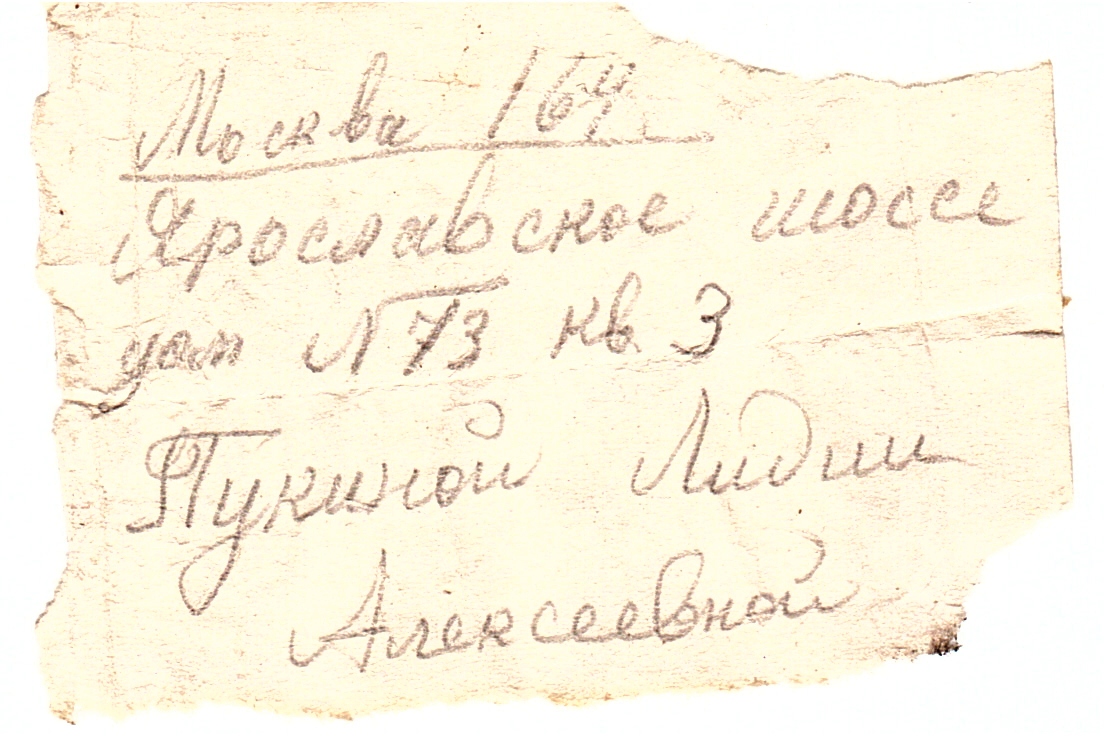 Москва 164
Ярославское шоссе
дом N 73 кв 3
Пукиной Лидии
Алексеевной